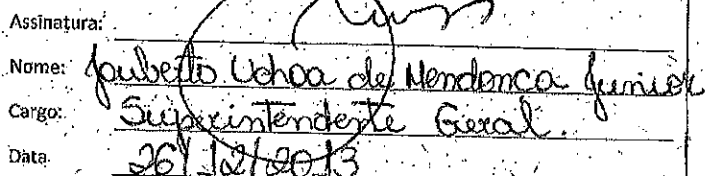 Assinatura:
Nome: Jouberto Uchoa de Mendonca Junior
Cargo: Superintendente Geral.
Data 26/12/2013